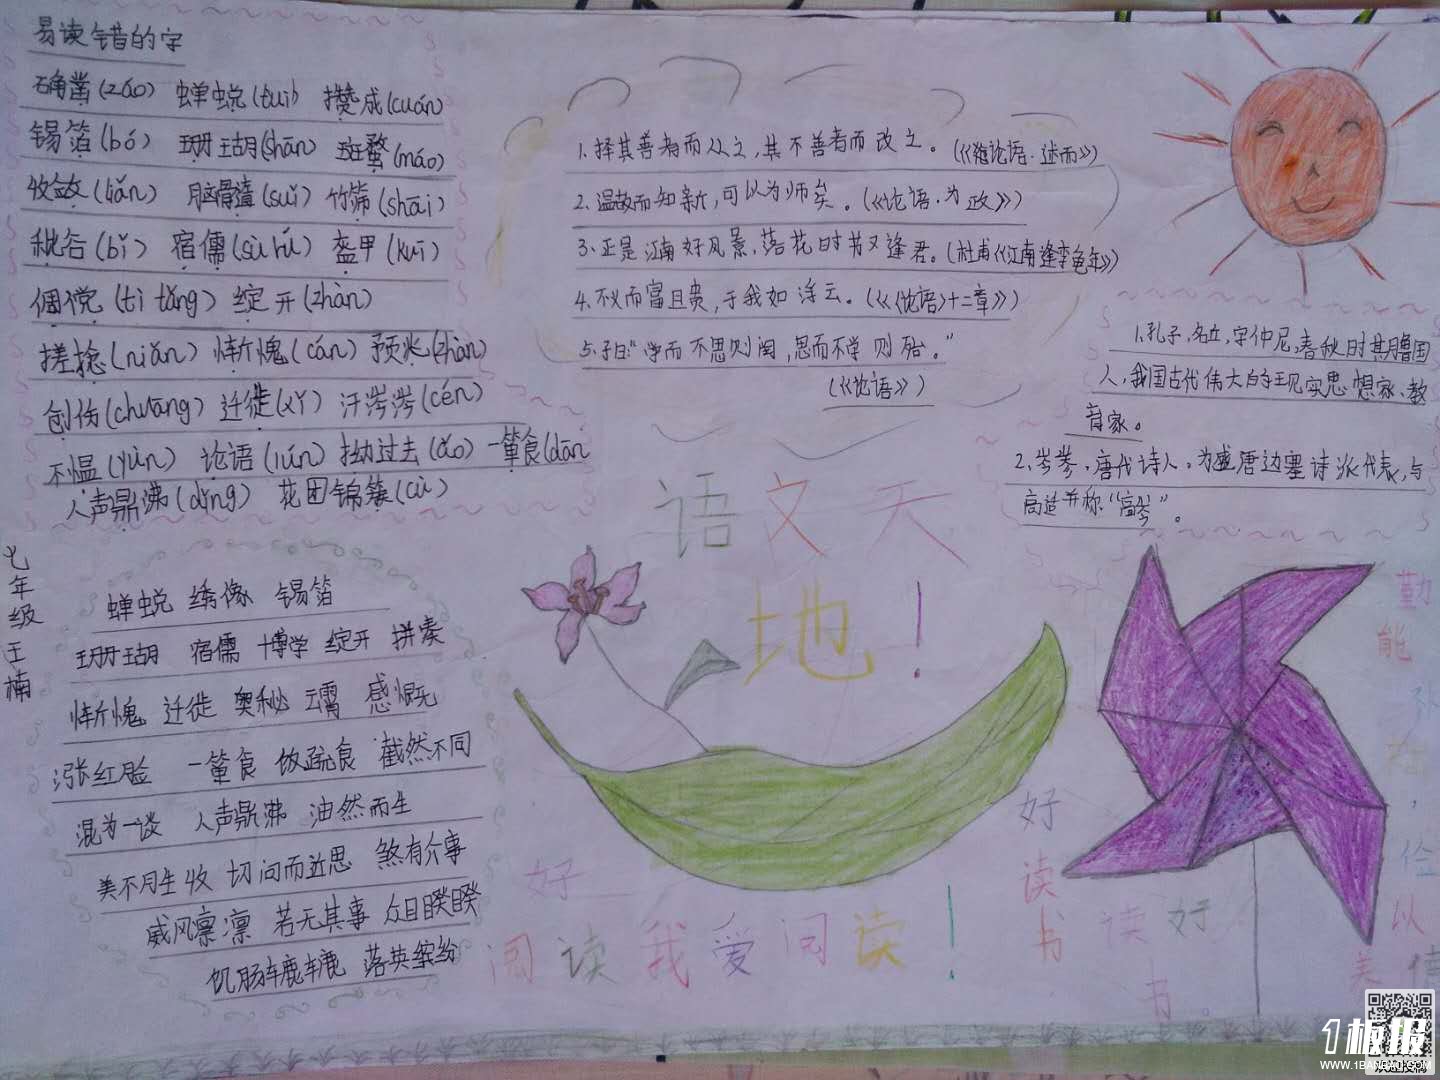 易读错的字
确凿(záo) 蝉蜕(tuì) 攒成(cuán)
锡箔(bó) 珊瑚(shān) 斑蝥(máo)
收敛(liǎn) 脑髓(suǐ) 竹筛(shāi)
秕谷(bǐ) 宿儒(sù rú) 盔甲(kuī)
倜傥(tì tǎng) 绽开(zhàn)
搓捻(niǎn) 惭愧(cán) 预兆(zhào)
创伤(chuāng) 迁徙(xǐ) 汗涔涔(cén)
不愠(yùn) 论语(lún) 拗过去(ǎo) 一箪食(dān
人声鼎沸(dǐng) 花团锦簇(cù)
七年级王楠
蝉蜕 绣像 锡箔
珊瑚 宿儒 博学 绽开 拼凑
惭愧 迁徙 奥秘 云霄 感慨
涨红脸 一箪食 饭疏食 截然不同
混为一谈 人声鼎沸 油然而生
美不胜收 切问而近思 煞有介事
威风凛凛 若无其事 众目睽睽
饥肠辘辘 落英缤纷
1.择其善者而从之,其不善者而改之。(《论语·述而》)
2.温故而知新,可以为师矣。(《论语·为政》)
3.正是江南好风景,落花时节又逢君。(杜甫《江南逢李龟年》)
4.不义而富且贵,于我如浮云。(《《论语》十二章》)
5.子曰:“学而不思则罔,思而不学则殆。”
(《论语》)
1.孔子,名丘,字仲尼,春秋时期鲁国
人,我国古代伟大的现实思想家、教
育家。
2.岑参,唐代诗人。为盛唐边塞诗派代表,与
高适并称“高岑”。
语文天
地!
好
阅读我爱阅读!
好读书
读好
书。
勤能补拙,俭以
美德
1板报
WWW.1BANBAO.COM
欢迎投稿